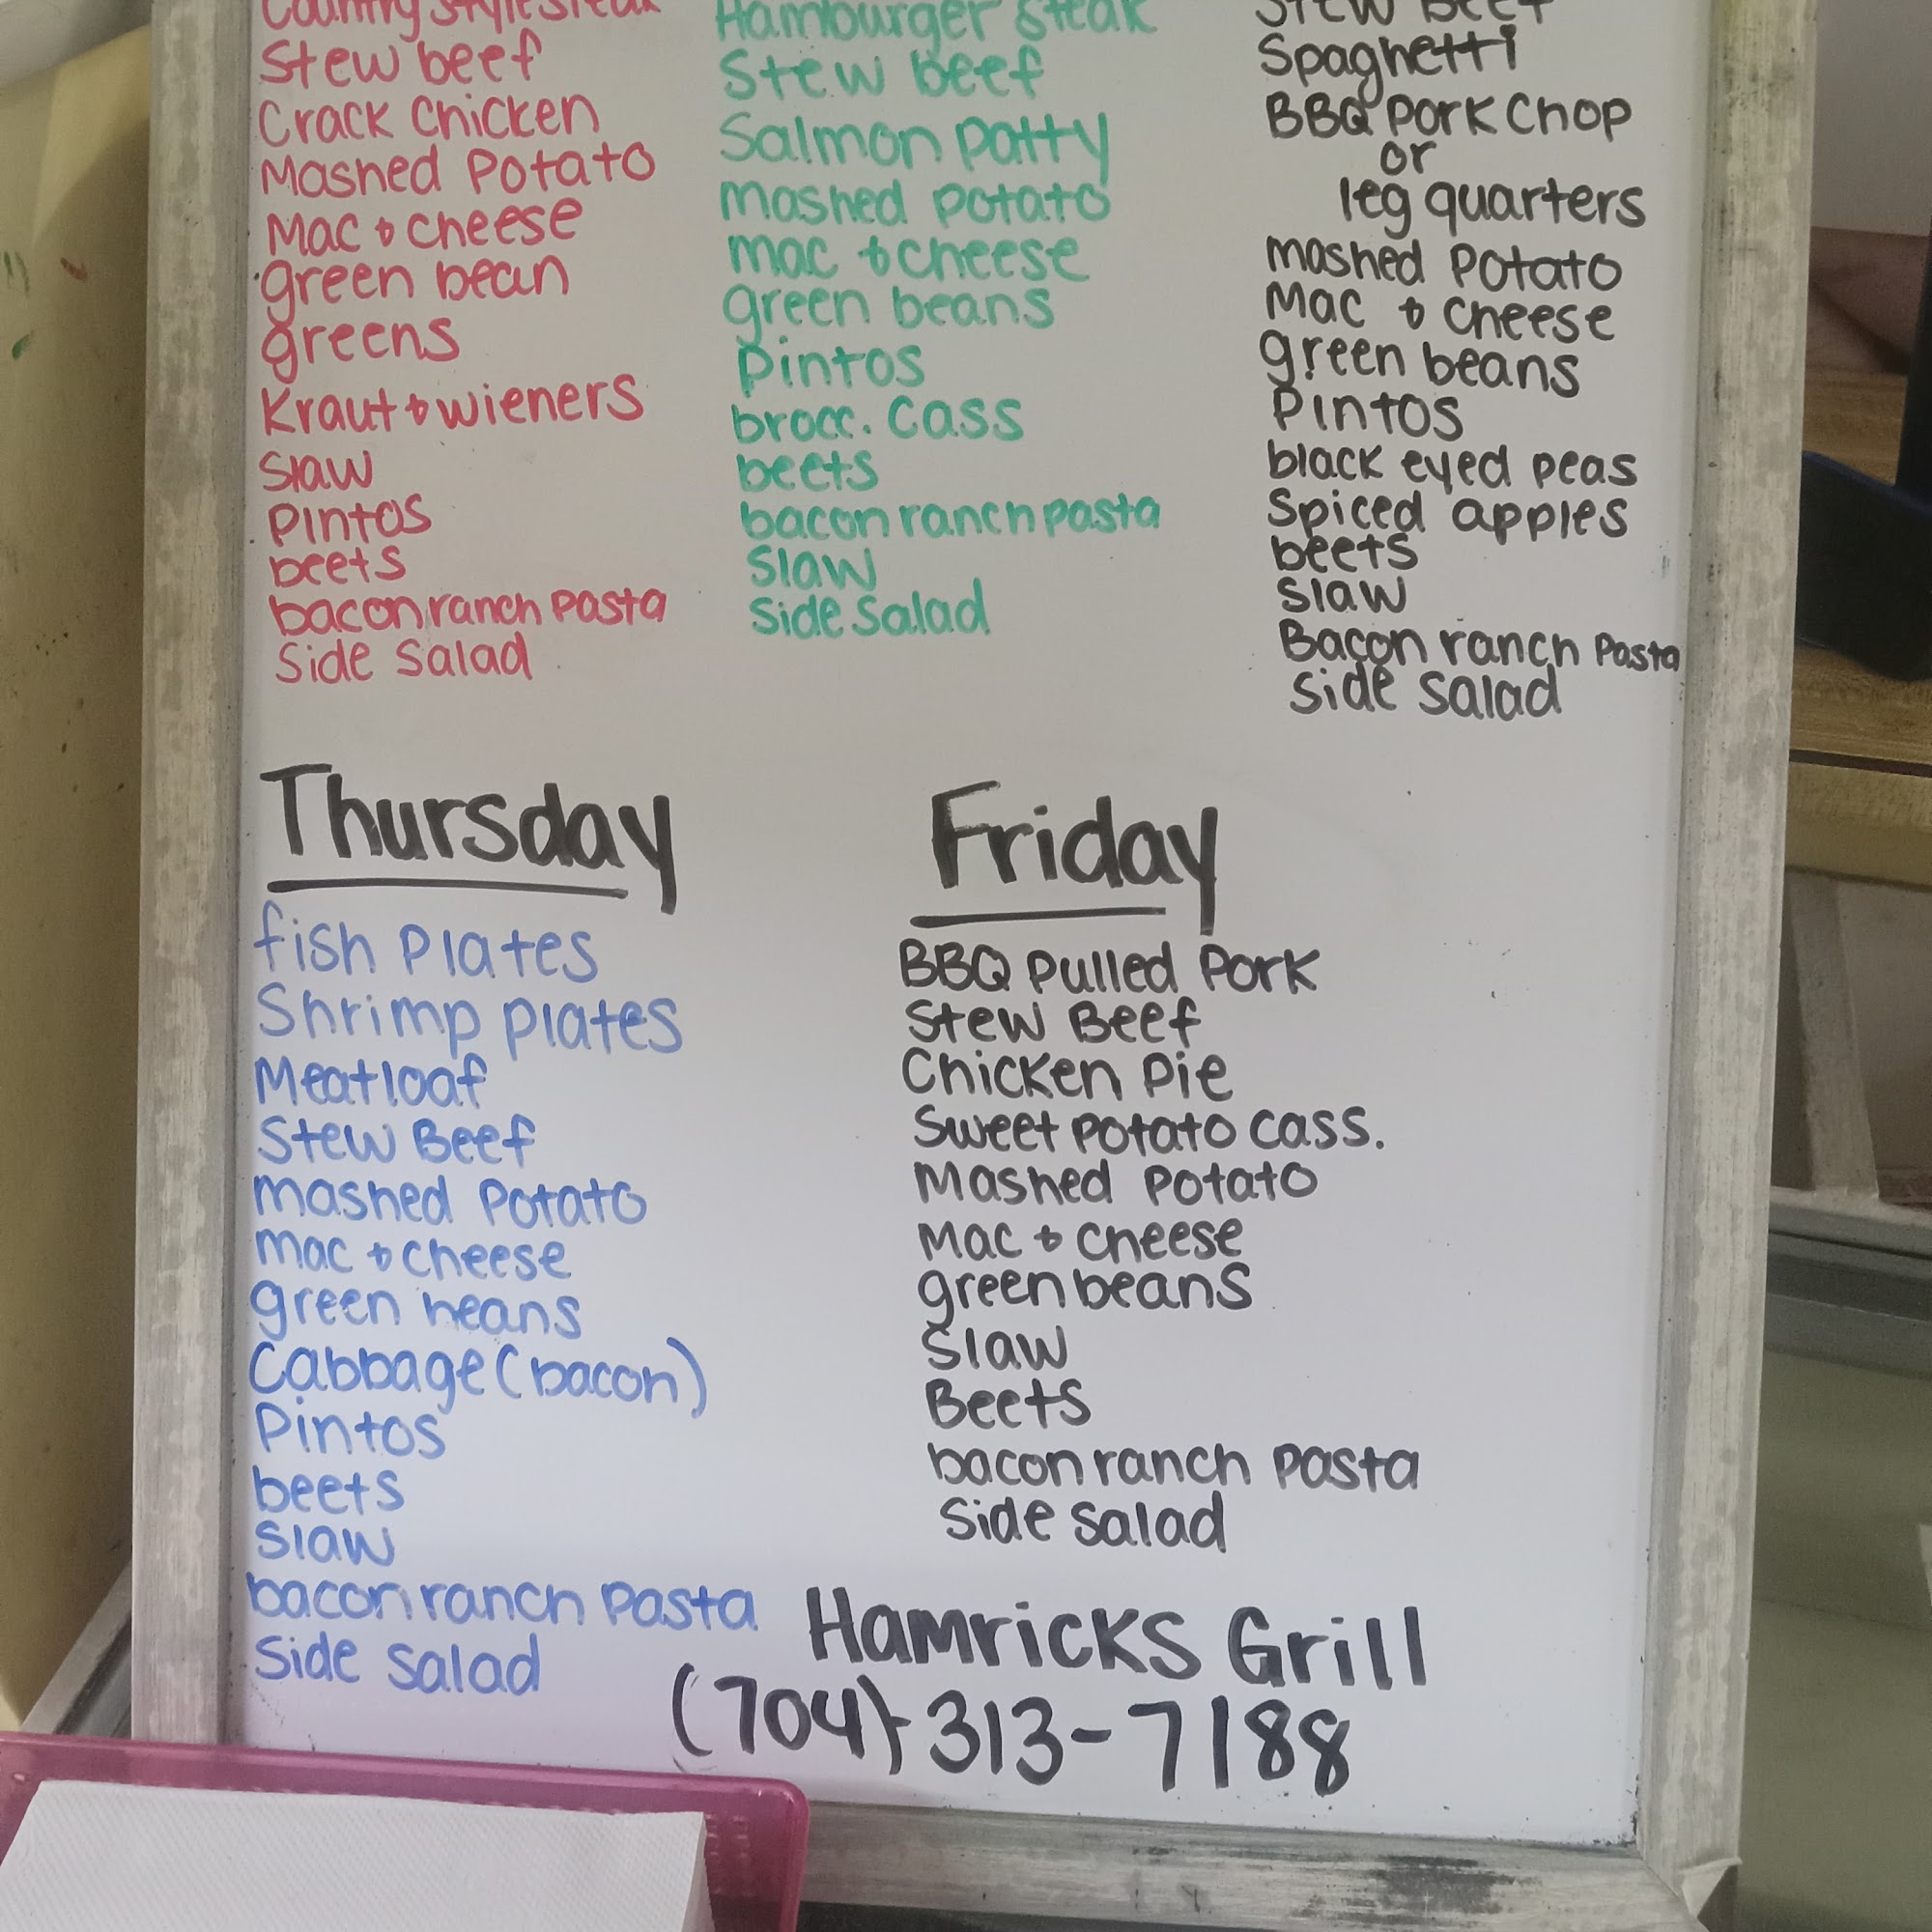 Country style steak
Stew beef
Crack Chicken
Mashed Potato
Mac & cheese
green bean
greens
Kraut & wieners
Slaw
Pintos
beets
bacon ranch Pasta
Side Salad
Hamburger Steak
Stew beef
Salmon patty
mashed potato
mac & cheese
green beans
Pintos
brocc. Cass
beets
bacon ranch pasta
Slaw
Side Salad
Stew Beef
Spaghetti
BBQ Pork Chop
or
leg quarters
mashed Potato
Mac & cheese
green beans
Pintos
black eyed peas
Spiced apples
beets
Slaw
Bacon ranch Pasta
Side Salad
Thursday
fish Plates
Shrimp plates
Meatloaf
Stew Beef
mashed Potato
mac & cheese
green beans
Cabbage (bacon)
Pintos
beets
Slaw
bacon ranch Pasta
Side Salad
Friday
BBQ Pulled Pork
Stew Beef
Chicken Pie
Sweet Potato Cass.
Mashed Potato
Mac & Cheese
green beans
Slaw
Beets
bacon ranch Pasta
Side Salad
Hamricks Grill
(704)-313-7188